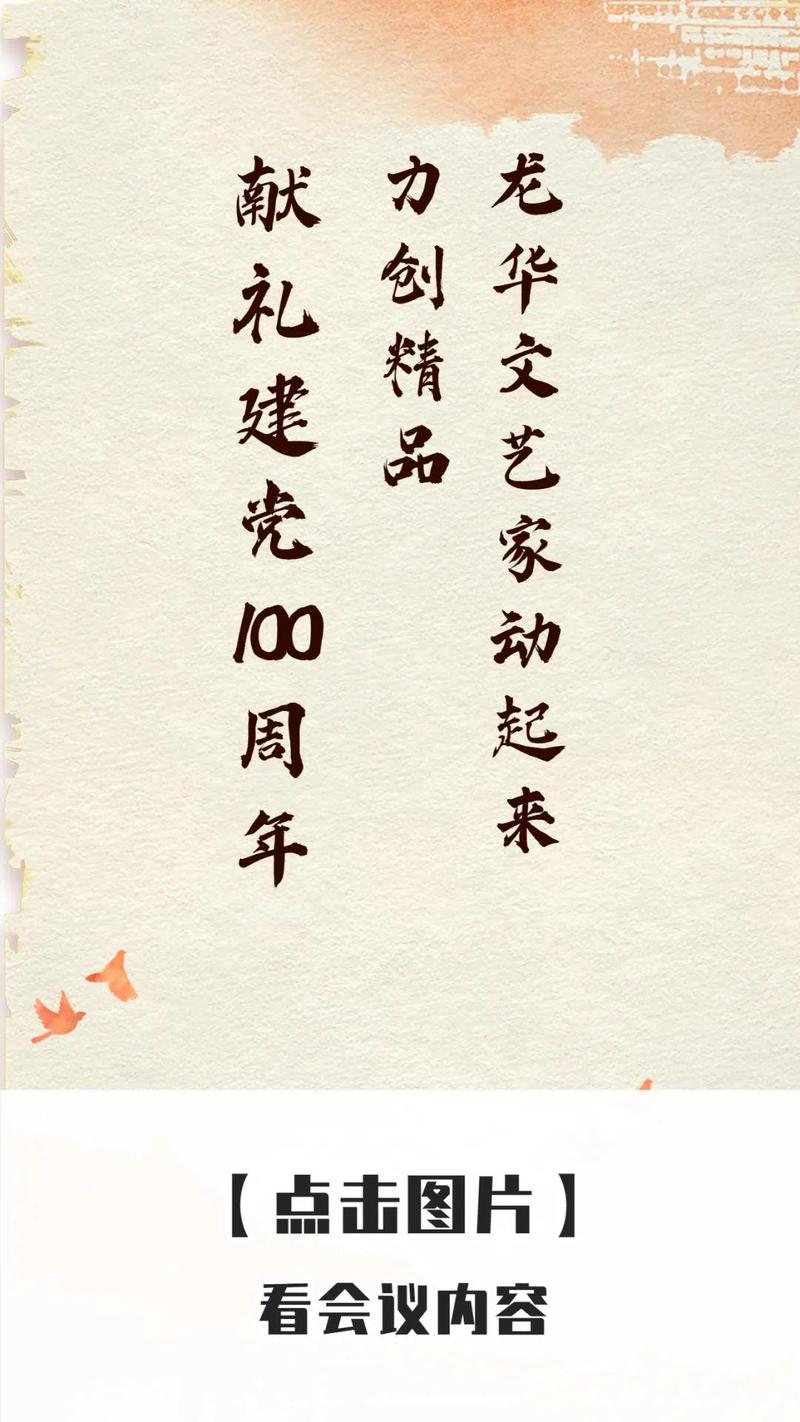 龙华文艺家动起来
力创精品
献礼建党100周年
【点击图片】
看会议内容